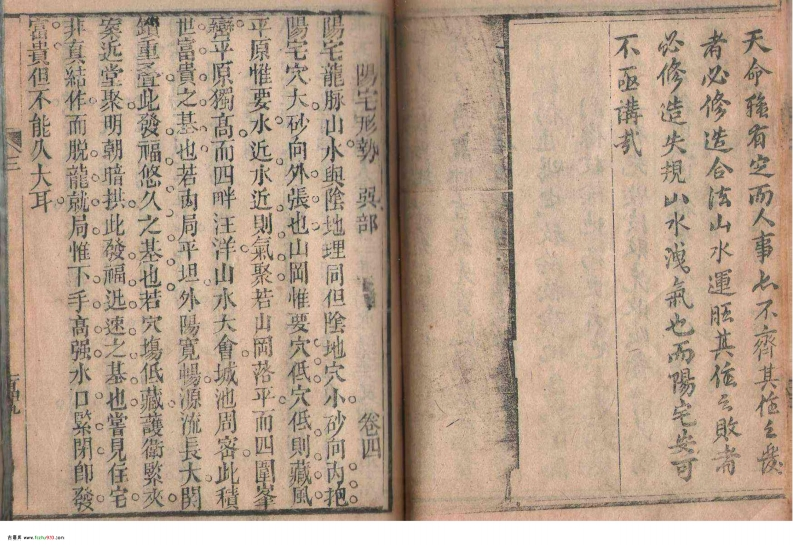 天命雖有定而人事之不齊其住之發
者必修造合法山水運旺其住之敗者
必修造失規山水洩氣也而陽宅安可
不亟講哉
陽宅形勢 巽部 卷四
陽宅龍脉山水與陰地理同但陰地穴小砂向內抱
陽宅穴大砂向外張也山岡惟要穴低穴低則藏風
平原惟要水近水近則氣聚若山岡落平而四圍峯
巒平原獨高而四畔汪洋山水大會城池周密此積
世富貴之基也若內局平坦外陽寬暢源流長大關
鎖重疊此發福悠久之基也若穴塲低藏護衛緊夾
案近堂聚明朝暗拱此發福迅速之基也嘗見住宅
非真結作而脫龍就局惟下手高强水口緊閉即發
富貴但不能久大耳
三
古籍库 www.